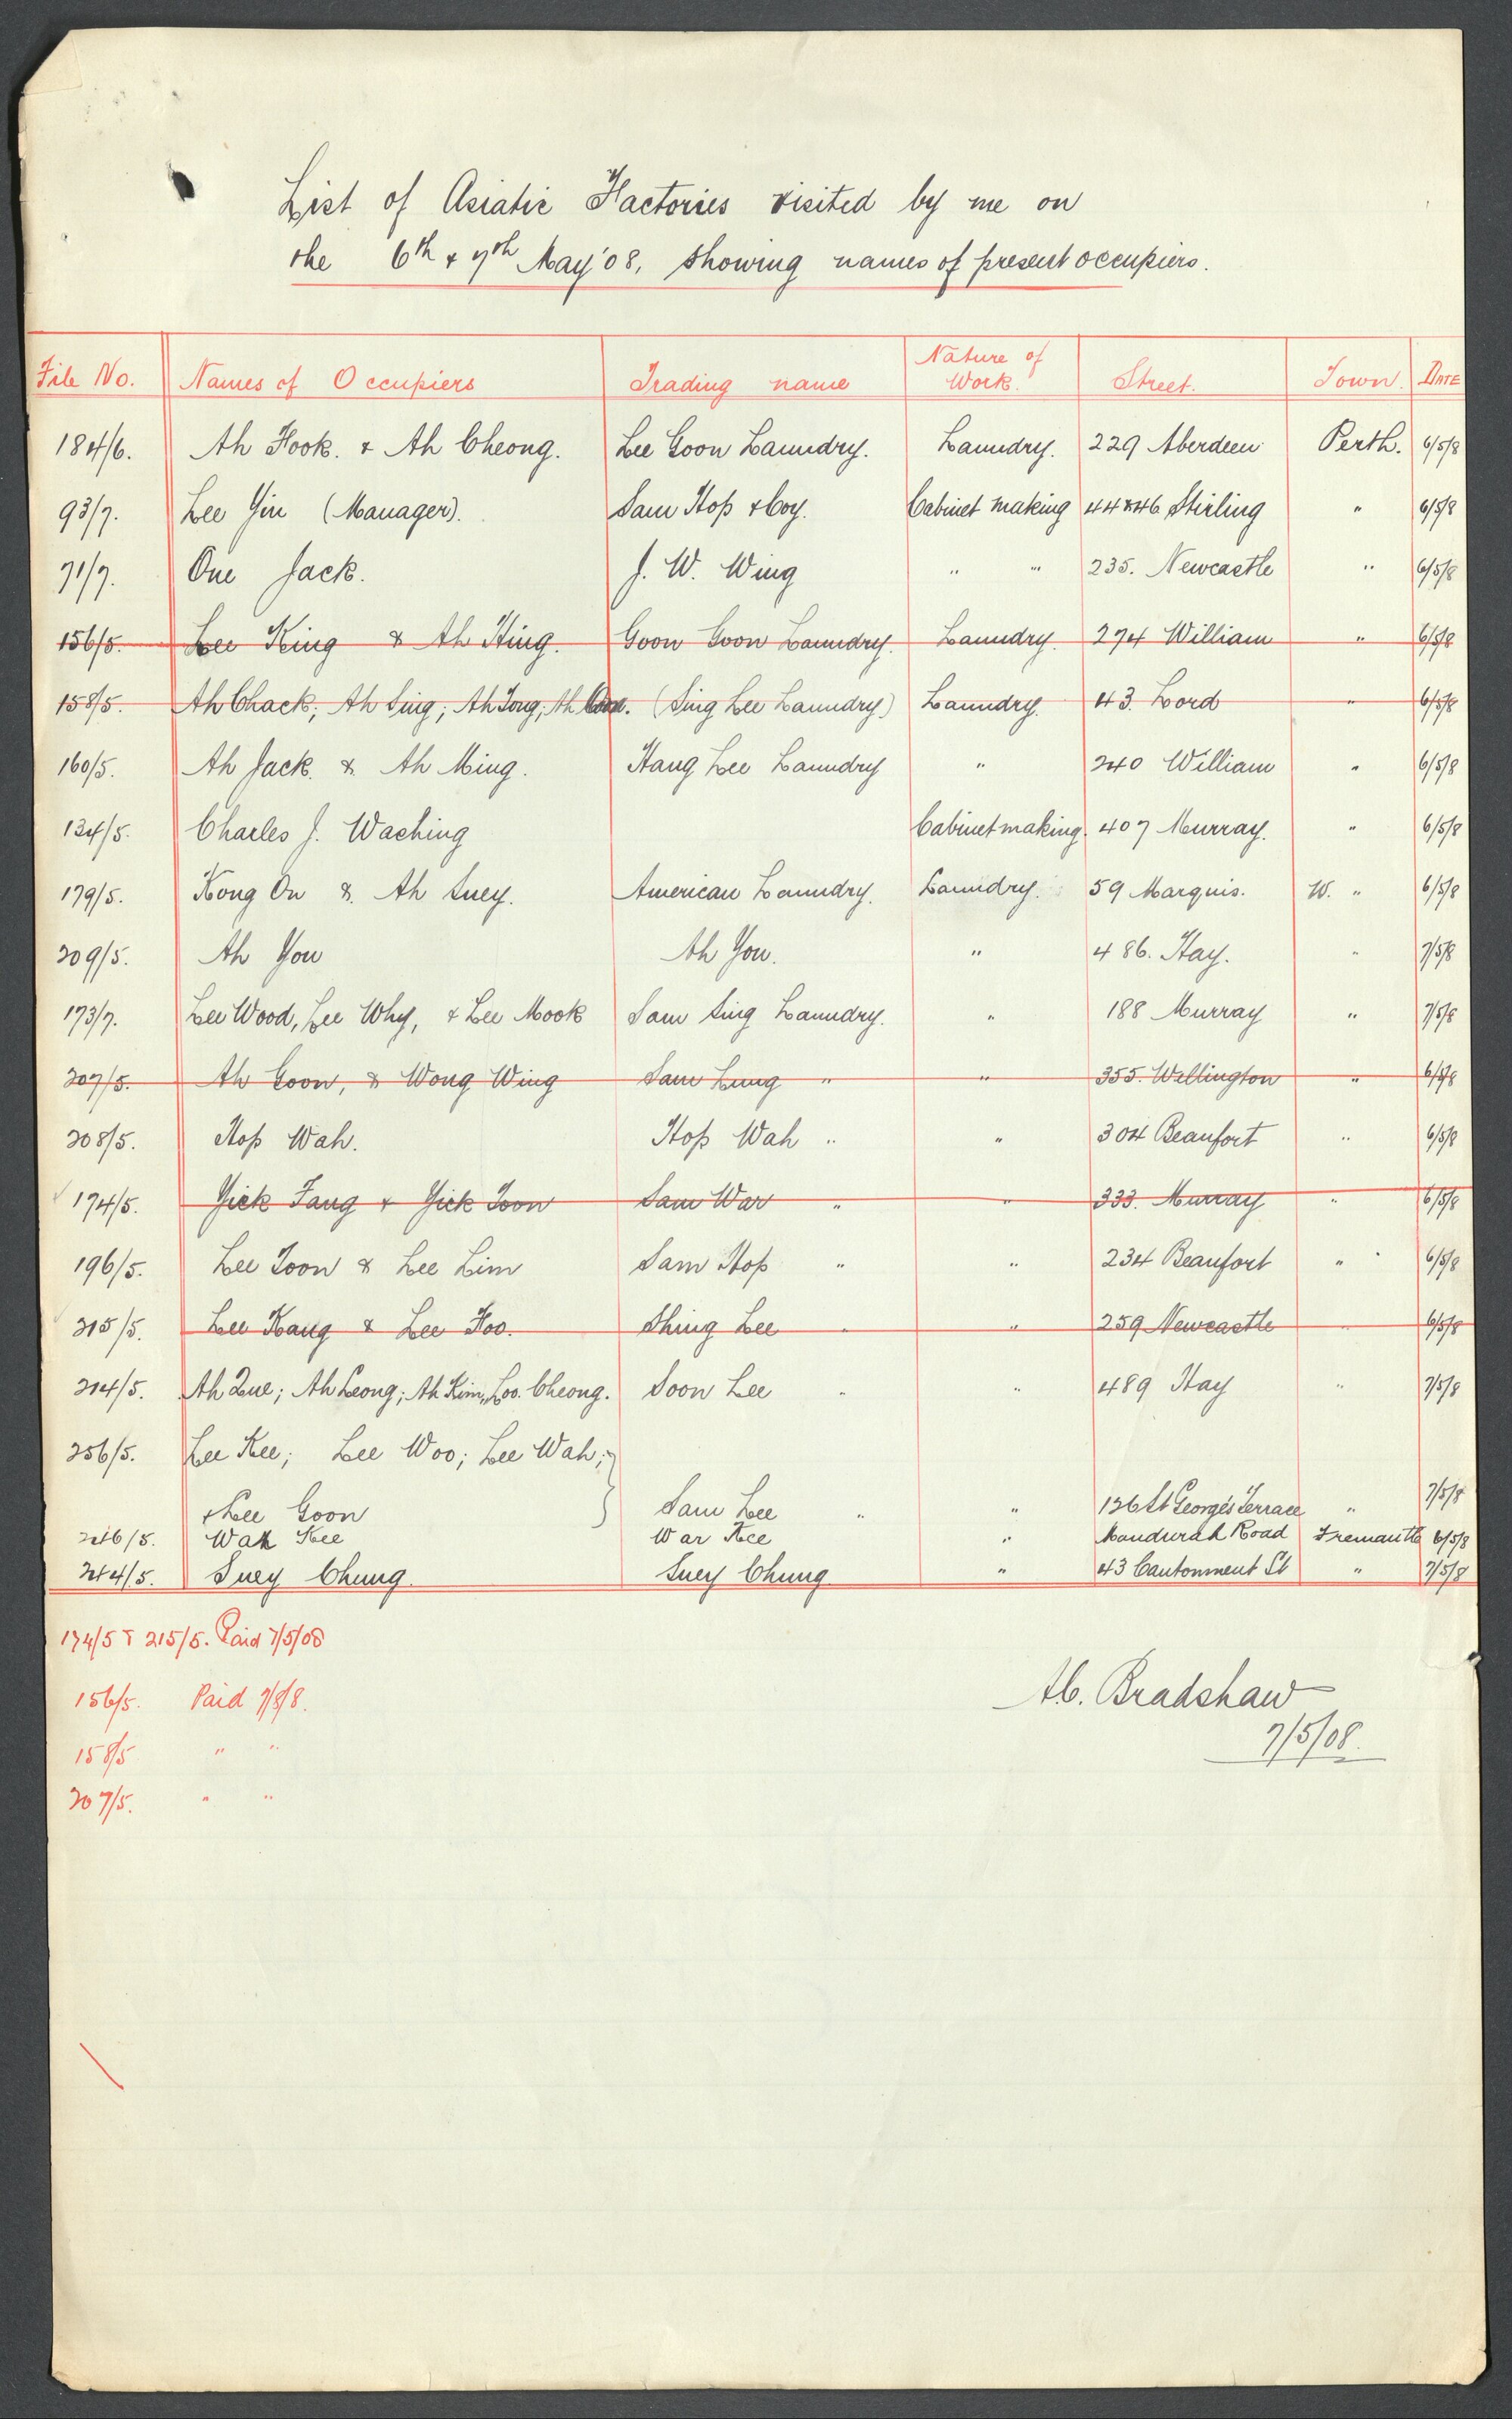 List of Asiatic Factories visited by me on
the 6th & 7th May '08, showing names of present occupiers.
File No. Names of Occupiers Trading name Nature of Work. Street. Town. DATE
184/6. Ah Hook. & Ah Cheong. Lee Goon Laundry. Laundry. 229 Aberdeen Perth. 6/5/8
93/7. Lee Yin (Manager). Sam Hop & Coy. Cabinet making 44 & 46 Stirling " 6/5/8
71/7. One Jack. J. W. Wing " " 235. Newcastle " 6/5/8
156/5. Lee King & Ah Hing. Goon Goon Laundry. Laundry. 274 William " 6/5/8
158/5. Ah Chack; Ah Sing; Ah Tong; Ah (Sing Lee Laundry) Laundry. 43. Lord " 6/5/8
160/5. Ah Jack. & Ah Ming. Hang Lee Laundry " 240 William " 6/5/8
134/5. Charles J. Waching Cabinet making. 407 Murray. " 6/5/8
179/5. Kong On & Ah Suey. American Laundry. Laundry. 59 Marquis. W. " 6/5/8
209/5. Ah You Ah You. " 486. Hay. " 7/5/8
173/7. Lee Wood, Lee Why, & Lee Mook Sam Sing Laundry. " 188 Murray " 7/5/8
207/5. Ah Goon, & Wong Wing Sam Lung " " 355. Wellington " 6/5/8
208/5. Hop Wah. Hop Wah " " 304 Beaufort " 6/5/8
174/5. Yick Fang & Yick Toon Sam War " " 333. Murray " 6/5/8
196/5. Lee Toon & Lee Lim Sam Hop " " 234 Beaufort " 6/5/8
215/5. Lee Kang & Lee Foo. Shing Lee " " 259 Newcastle " 6/5/8
214/5. Ah Que; Ah Leong; Ah Kim, Loo Cheong. Soon Lee " " 489 Hay " 7/5/8
256/5. Lee Kee; Lee Woo; Lee Wah;
& Lee Goon Sam Lee " " 126 St George's Terrace " 7/5/8
246/5. Wah Kee War Kee " Mandurah Road Fremantle 6/5/8
244/5. Suey Chung. Suey Chung " 43 Cantonment St " 7/5/8
174/5 & 215/5. Paid 7/5/08
156/5. Paid 7/5/8.
158/5 " "
207/5. " "
Bradshaw
7/5/08.